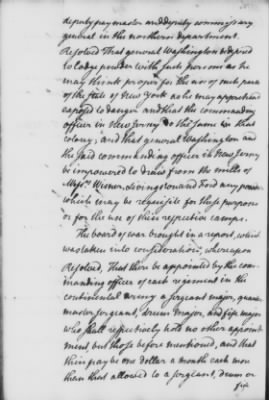 deputy pay master and deputy commissary
general in the northern department.
Resolved That general Washington be desired
to lodge powder with such persons as he
may think proper for the use of such parts
of the state of New York as he may apprehend
exposed to danger and that the commanding
officer in New Jersey do the same in that
colony; and that general Washington and
the said commanding officer in New Jersey
be impowered to draw from the mills of
Messrs. Wisner, Livingston and Ford any powder
which may be requisite for those purposes
or for the use of their respective camps.
The board of war brought in a report, which
was taken into consideration; whereupon
Resolved, That there be appointed by the com-
manding officer of each regiment in the
continental army a serjeant major, quarter
master serjeant, drum major, and fife major
who shall respectively hold no other appoint-
ment, but those before mentioned, and that
their pay be one dollar a month each more
than that allowed to a serjeant, drum or
fife